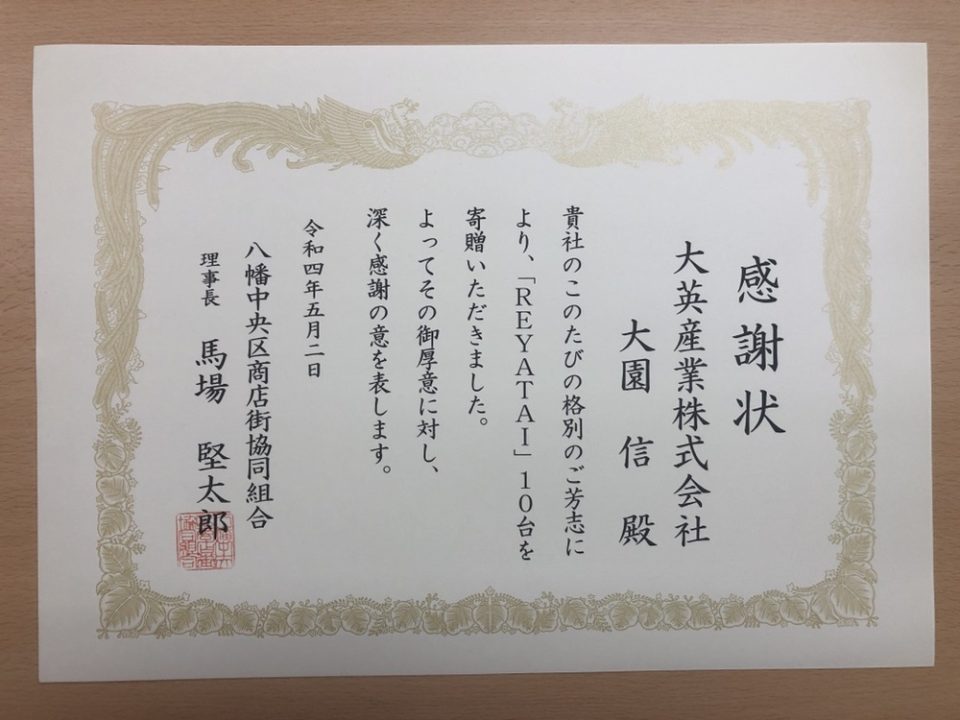 感謝状
大英産業株式会社
大園 信 殿
貴社のこのたびの格別のご芳志に
より、「ＲＥＹＡＴＡＩ」１０台を
寄贈いただきました。
よってその御厚意に対し、
深く感謝の意を表します。
令和四年五月二日
八幡中央区商店街協同組合
理事長 馬場 堅太郎